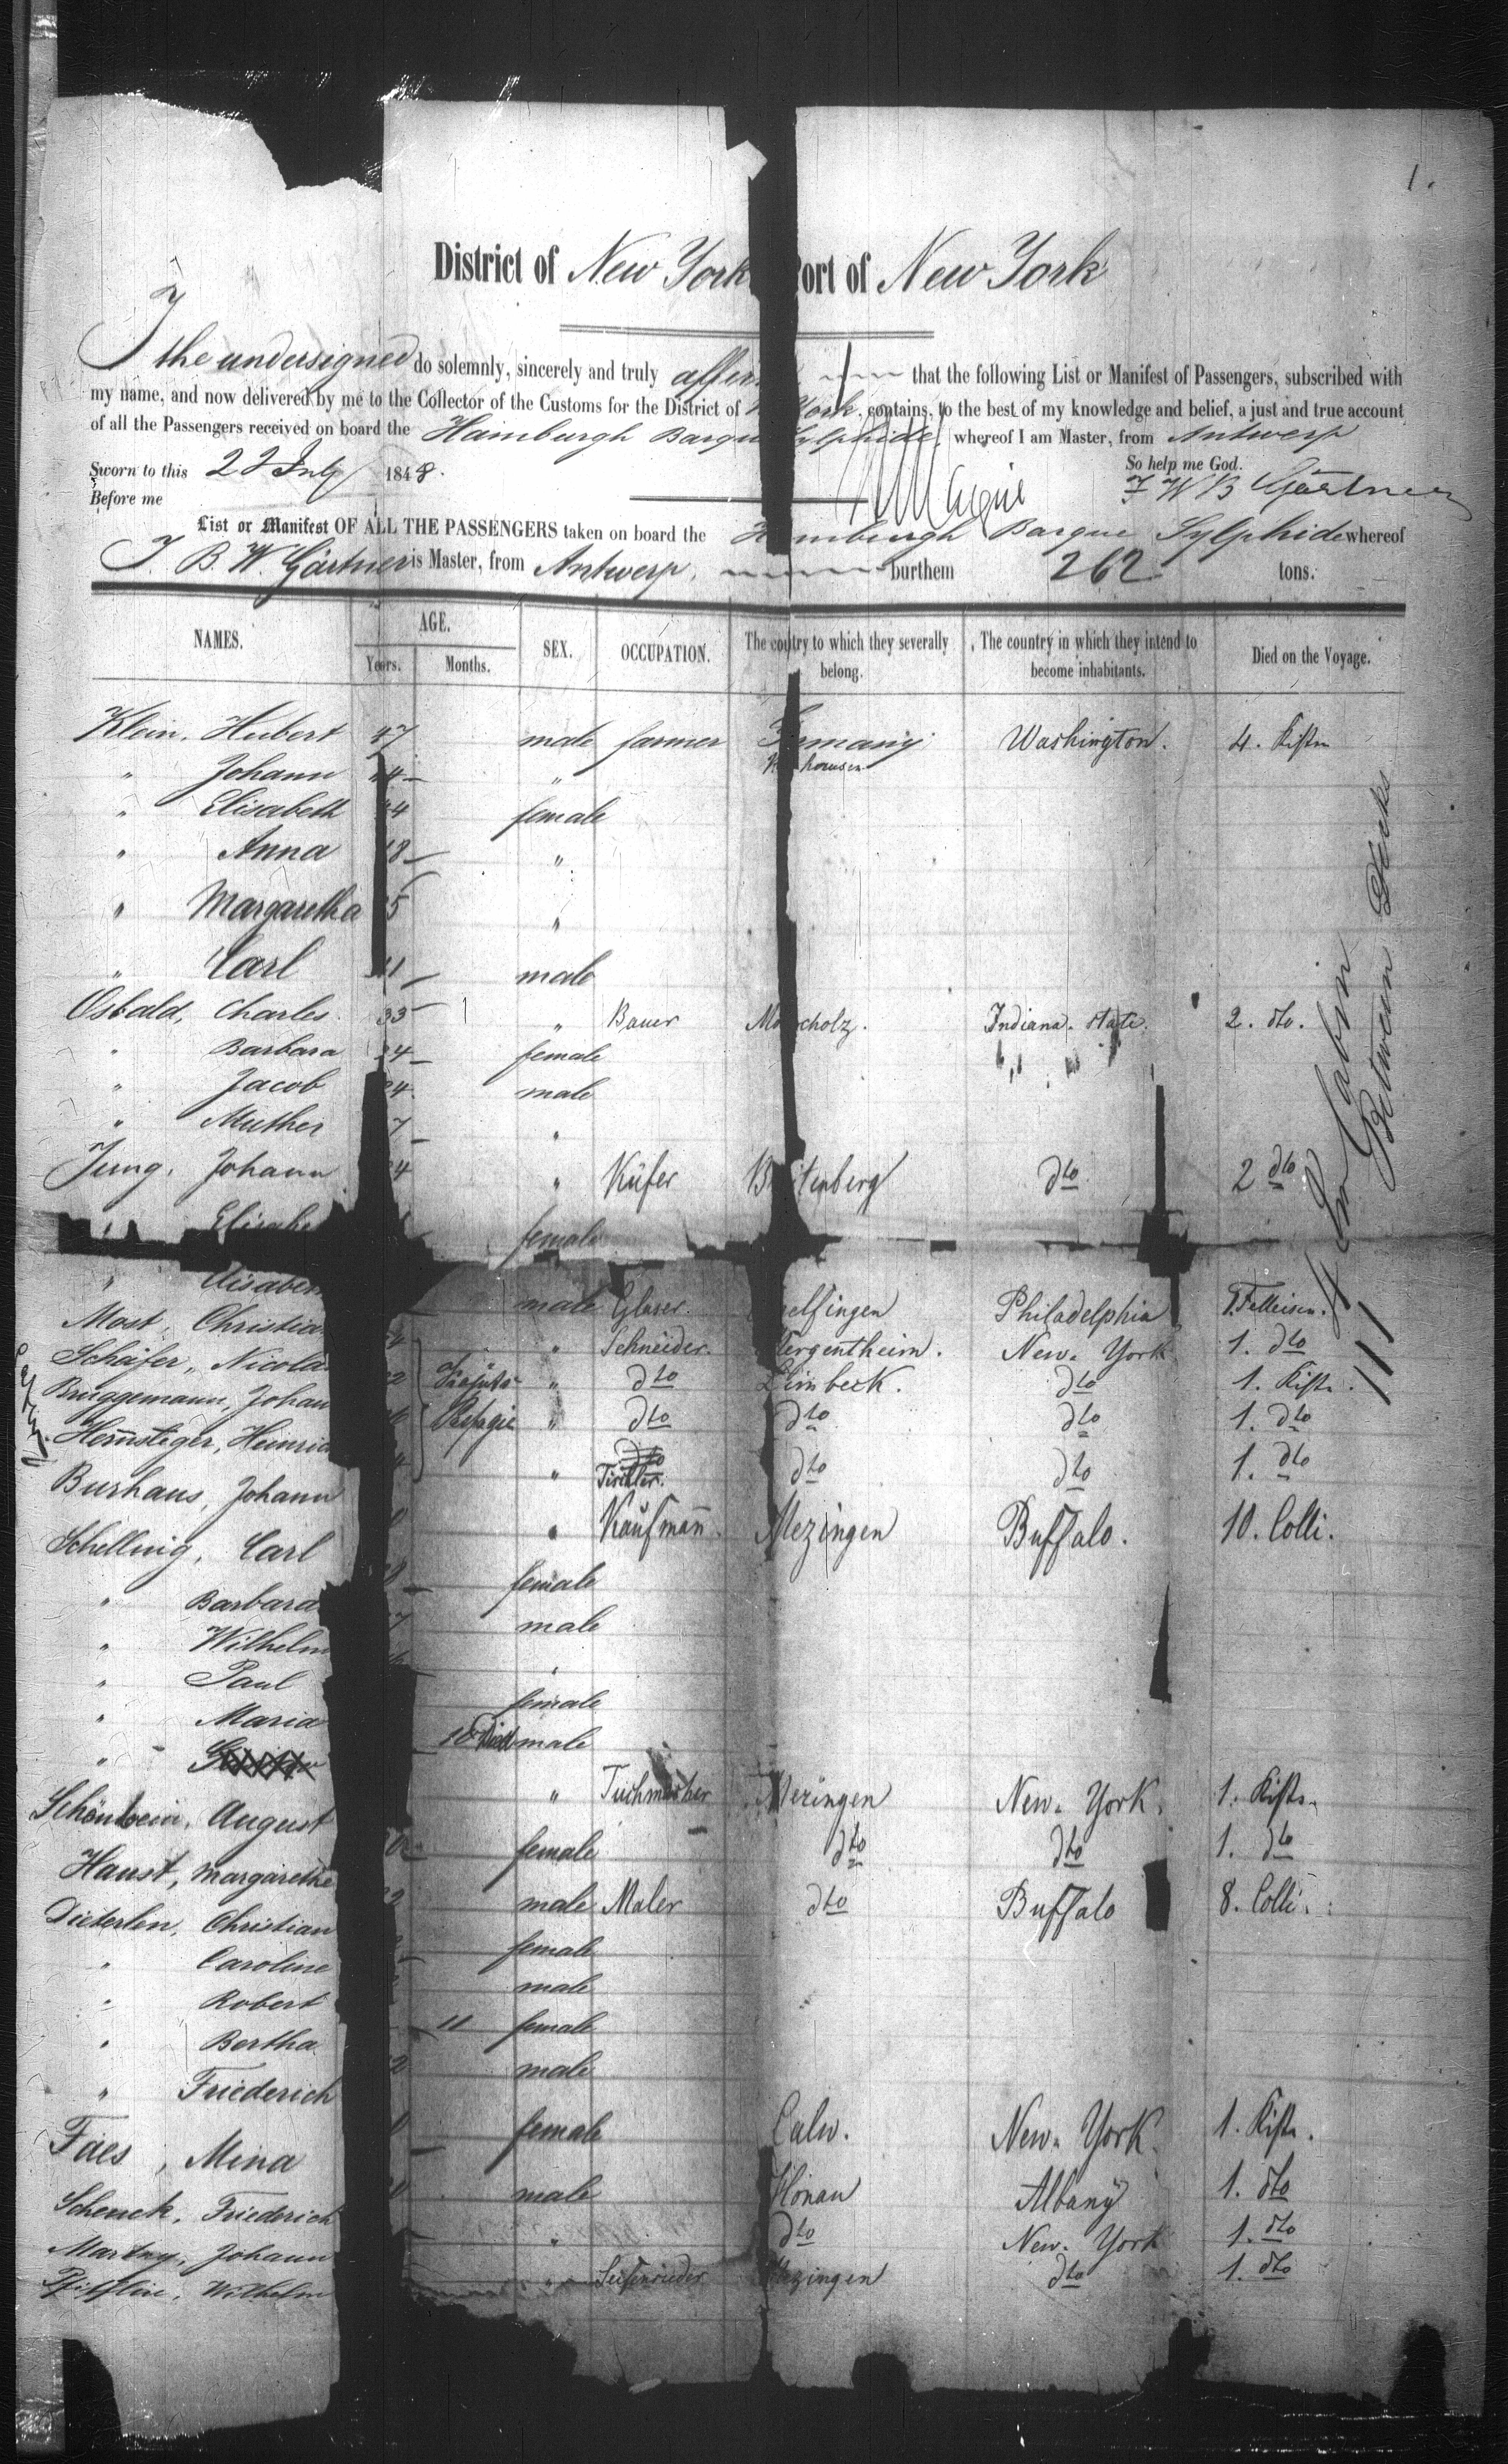 1.
District of New York Port of New York
I the undersigned do solemnly, sincerely and truly affirm that the following List or Manifest of Passengers, subscribed with
my name, and now delivered by me to the Collector of the Customs for the District of York, contains, to the best of my knowledge and belief, a just and true account
of all the Passengers received on board the Hamburgh Barque Sylphide whereof I am Master, from Antwerp
Sworn to this 22 July 1848. So help me God.
Before me F W B Gärtner
List or Manifest OF ALL THE PASSENGERS taken on board the Hamburgh Barque Sylphide whereof
J. B. W. Gärtner is Master, from Antwerp, burthem 262 tons.
NAMES. AGE. Years. Months. SEX. OCCUPATION. The country to which they severally belong. The country in which they intend to become inhabitants. Died on the Voyage.
Klein, Hubert 47 male farmer Germany Washington. 4. Kisten
" Johann 24 " hausen
" Elisabeth 44 female
" Anna 18 "
" Margaretha 15 "
" Carl 11 male
Osbald, Charles. 33 " Bauer M cholz. Indiana. state. 2. dto.
" Barbara 34 female
" Jacob 24 male
" Muther 7 "
Jung, Johann 24 " Küfer B tenberg dto 2 dto
" Elisabe female
" Elisabeth
Most, Christian male Glaser. elfingen Philadelphia 1. Felleisen.
Schäfer, Nicola " Schneider. Mergentheim. New-York 1. dto
Bruggemann, Johan Kajüte " dto Limbeck. dto 1. Kiste.
Hemsteger, Heinric Passagie " dto dto dto 1. dto
Burhaus, Johann " dto Tischler. dto dto 1. dto
Schelling, Carl " Kaufmann. Mezingen Buffalo. 10. Colli.
" Barbara female
" Wilhelm male
" Paul "
" Maria female
" 10 Died male
Schönbein, August " Tuchmacher Mezingen New-York. 1. Kiste
Haust, Margarethe female dto dto 1. dto
Dieterlen, Christian male Maler dto Buffalo 8. Colli.
" Caroline female
" Robert male
" Bertha 11 female
" Friederich male
Faes, Mina female Calw. New-York. 1. Kiste.
Schenck, Friederich male Ilonau Albany 1. dto
Martny, Johann " dto New-York 1. dto
Wilhelm " Seifensieder Mezingen dto 1. dto
4 In Cabin
111 Between Decks